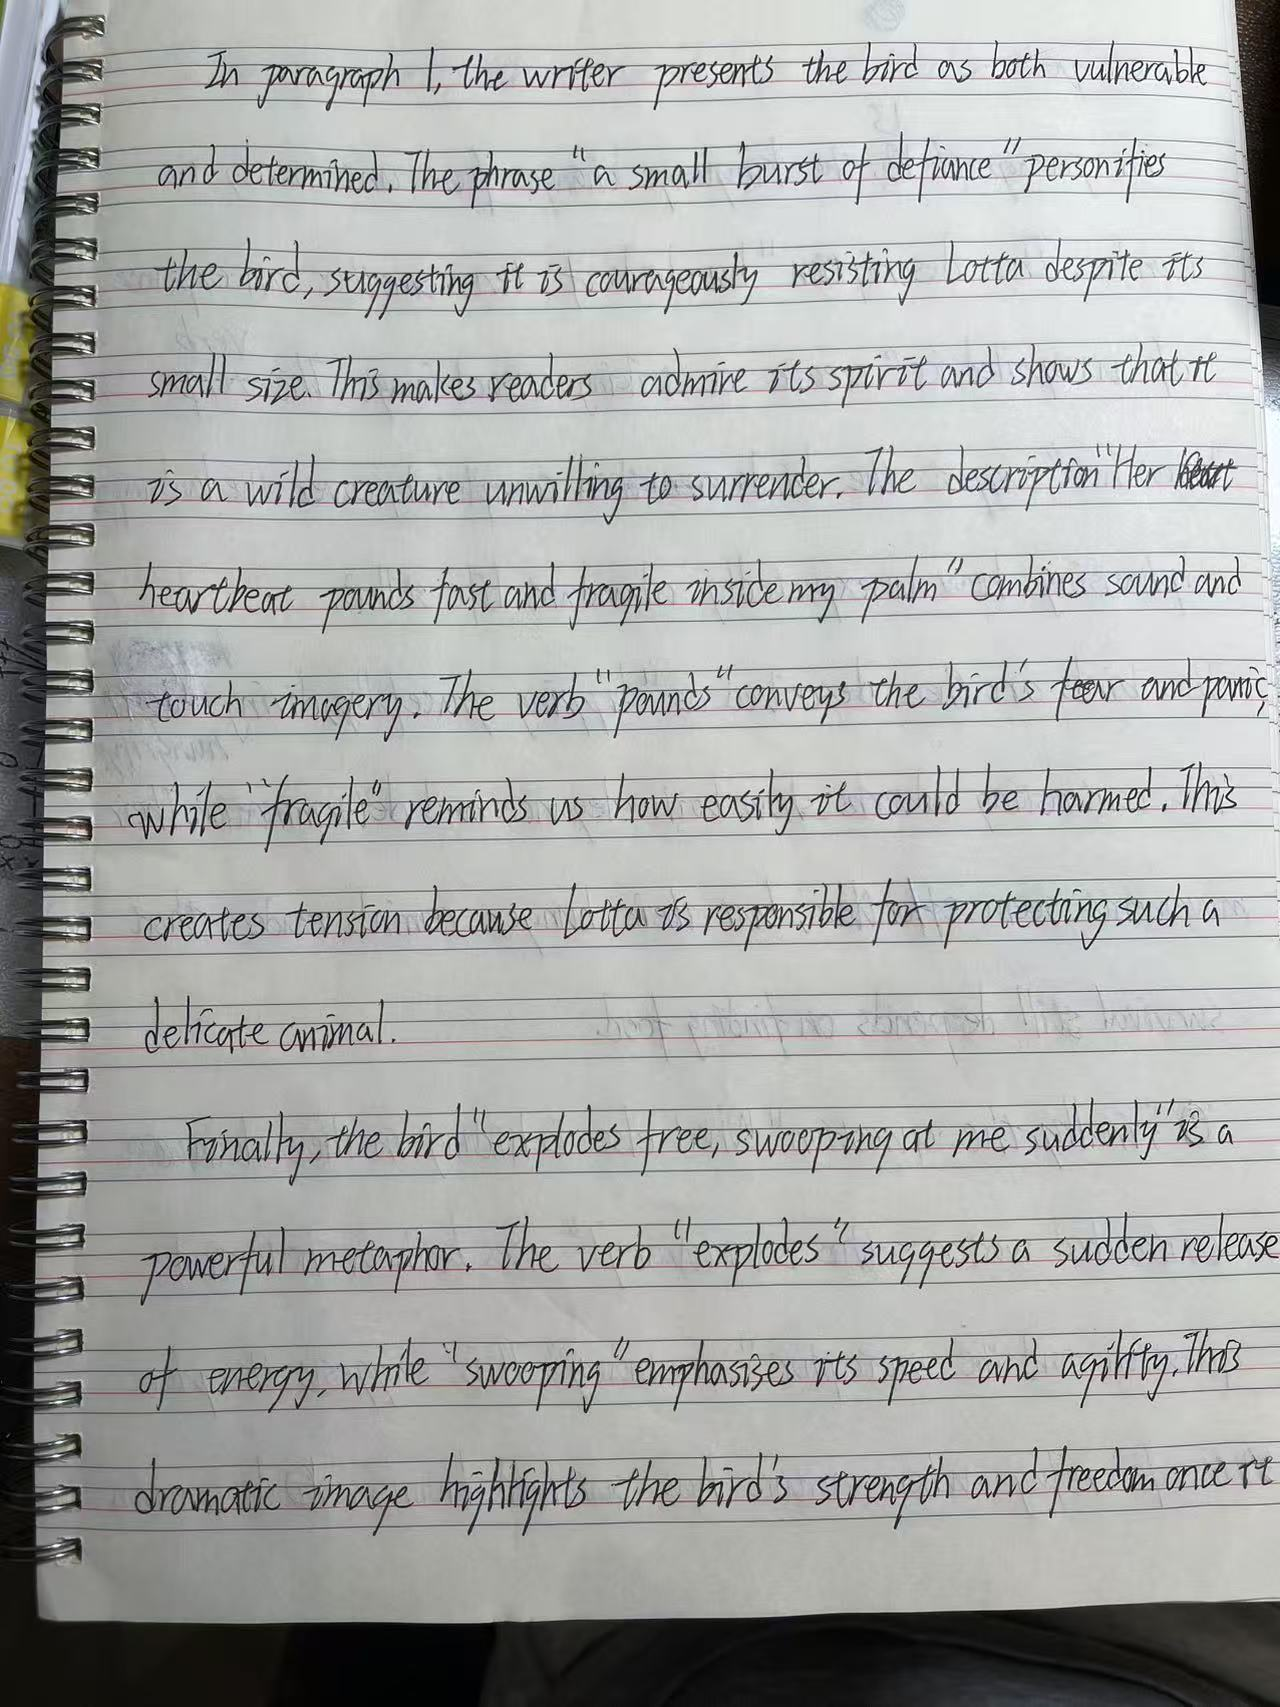 In paragraph 1, the writer presents the bird as both vulnerable
and determined. The phrase "a small burst of defiance" personifies
the bird, suggesting it is courageously resisting Lotta despite its
small size. This makes readers admire its spirit and shows that it
is a wild creature unwilling to surrender. The description "Her
heartbeat pounds fast and fragile inside my palm" combines sound and
touch imagery. The verb "pounds" conveys the bird's fear and panic,
while "fragile" reminds us how easily it could be harmed. This
creates tension because Lotta is responsible for protecting such a
delicate animal.
Finally, the bird "explodes free, swooping at me suddenly" is a
powerful metaphor. The verb "explodes" suggests a sudden release
of energy, while "swooping" emphasises its speed and agility. This
dramatic image highlights the bird's strength and freedom once it